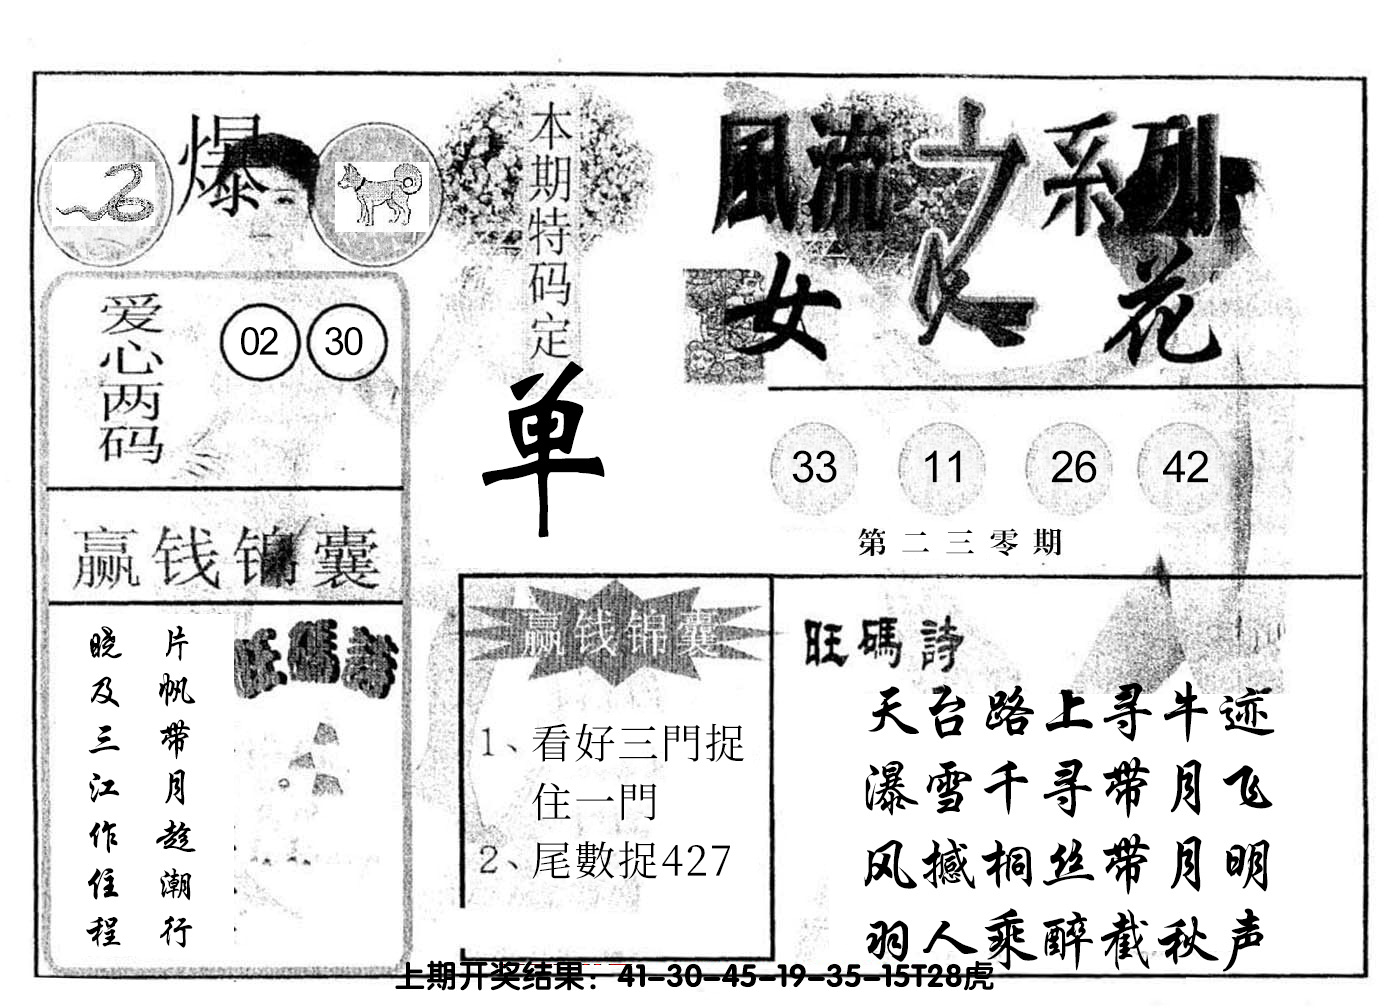 爆
本期特码定
单
風流之系列
女人花
爱心两码
02 30
33 11 26 42
第二三零期
赢钱锦囊
片帆带月趁潮行
晓及三江作住程
旺碼詩
赢钱锦囊
1、看好三門捉
住一門
2、尾數捉427
旺碼詩
天台路上寻牛迹
瀑雪千寻带月飞
风撼桐丝带月明
羽人乘醉截秋声
上期开奖结果：41-30-45-19-35-15T28虎